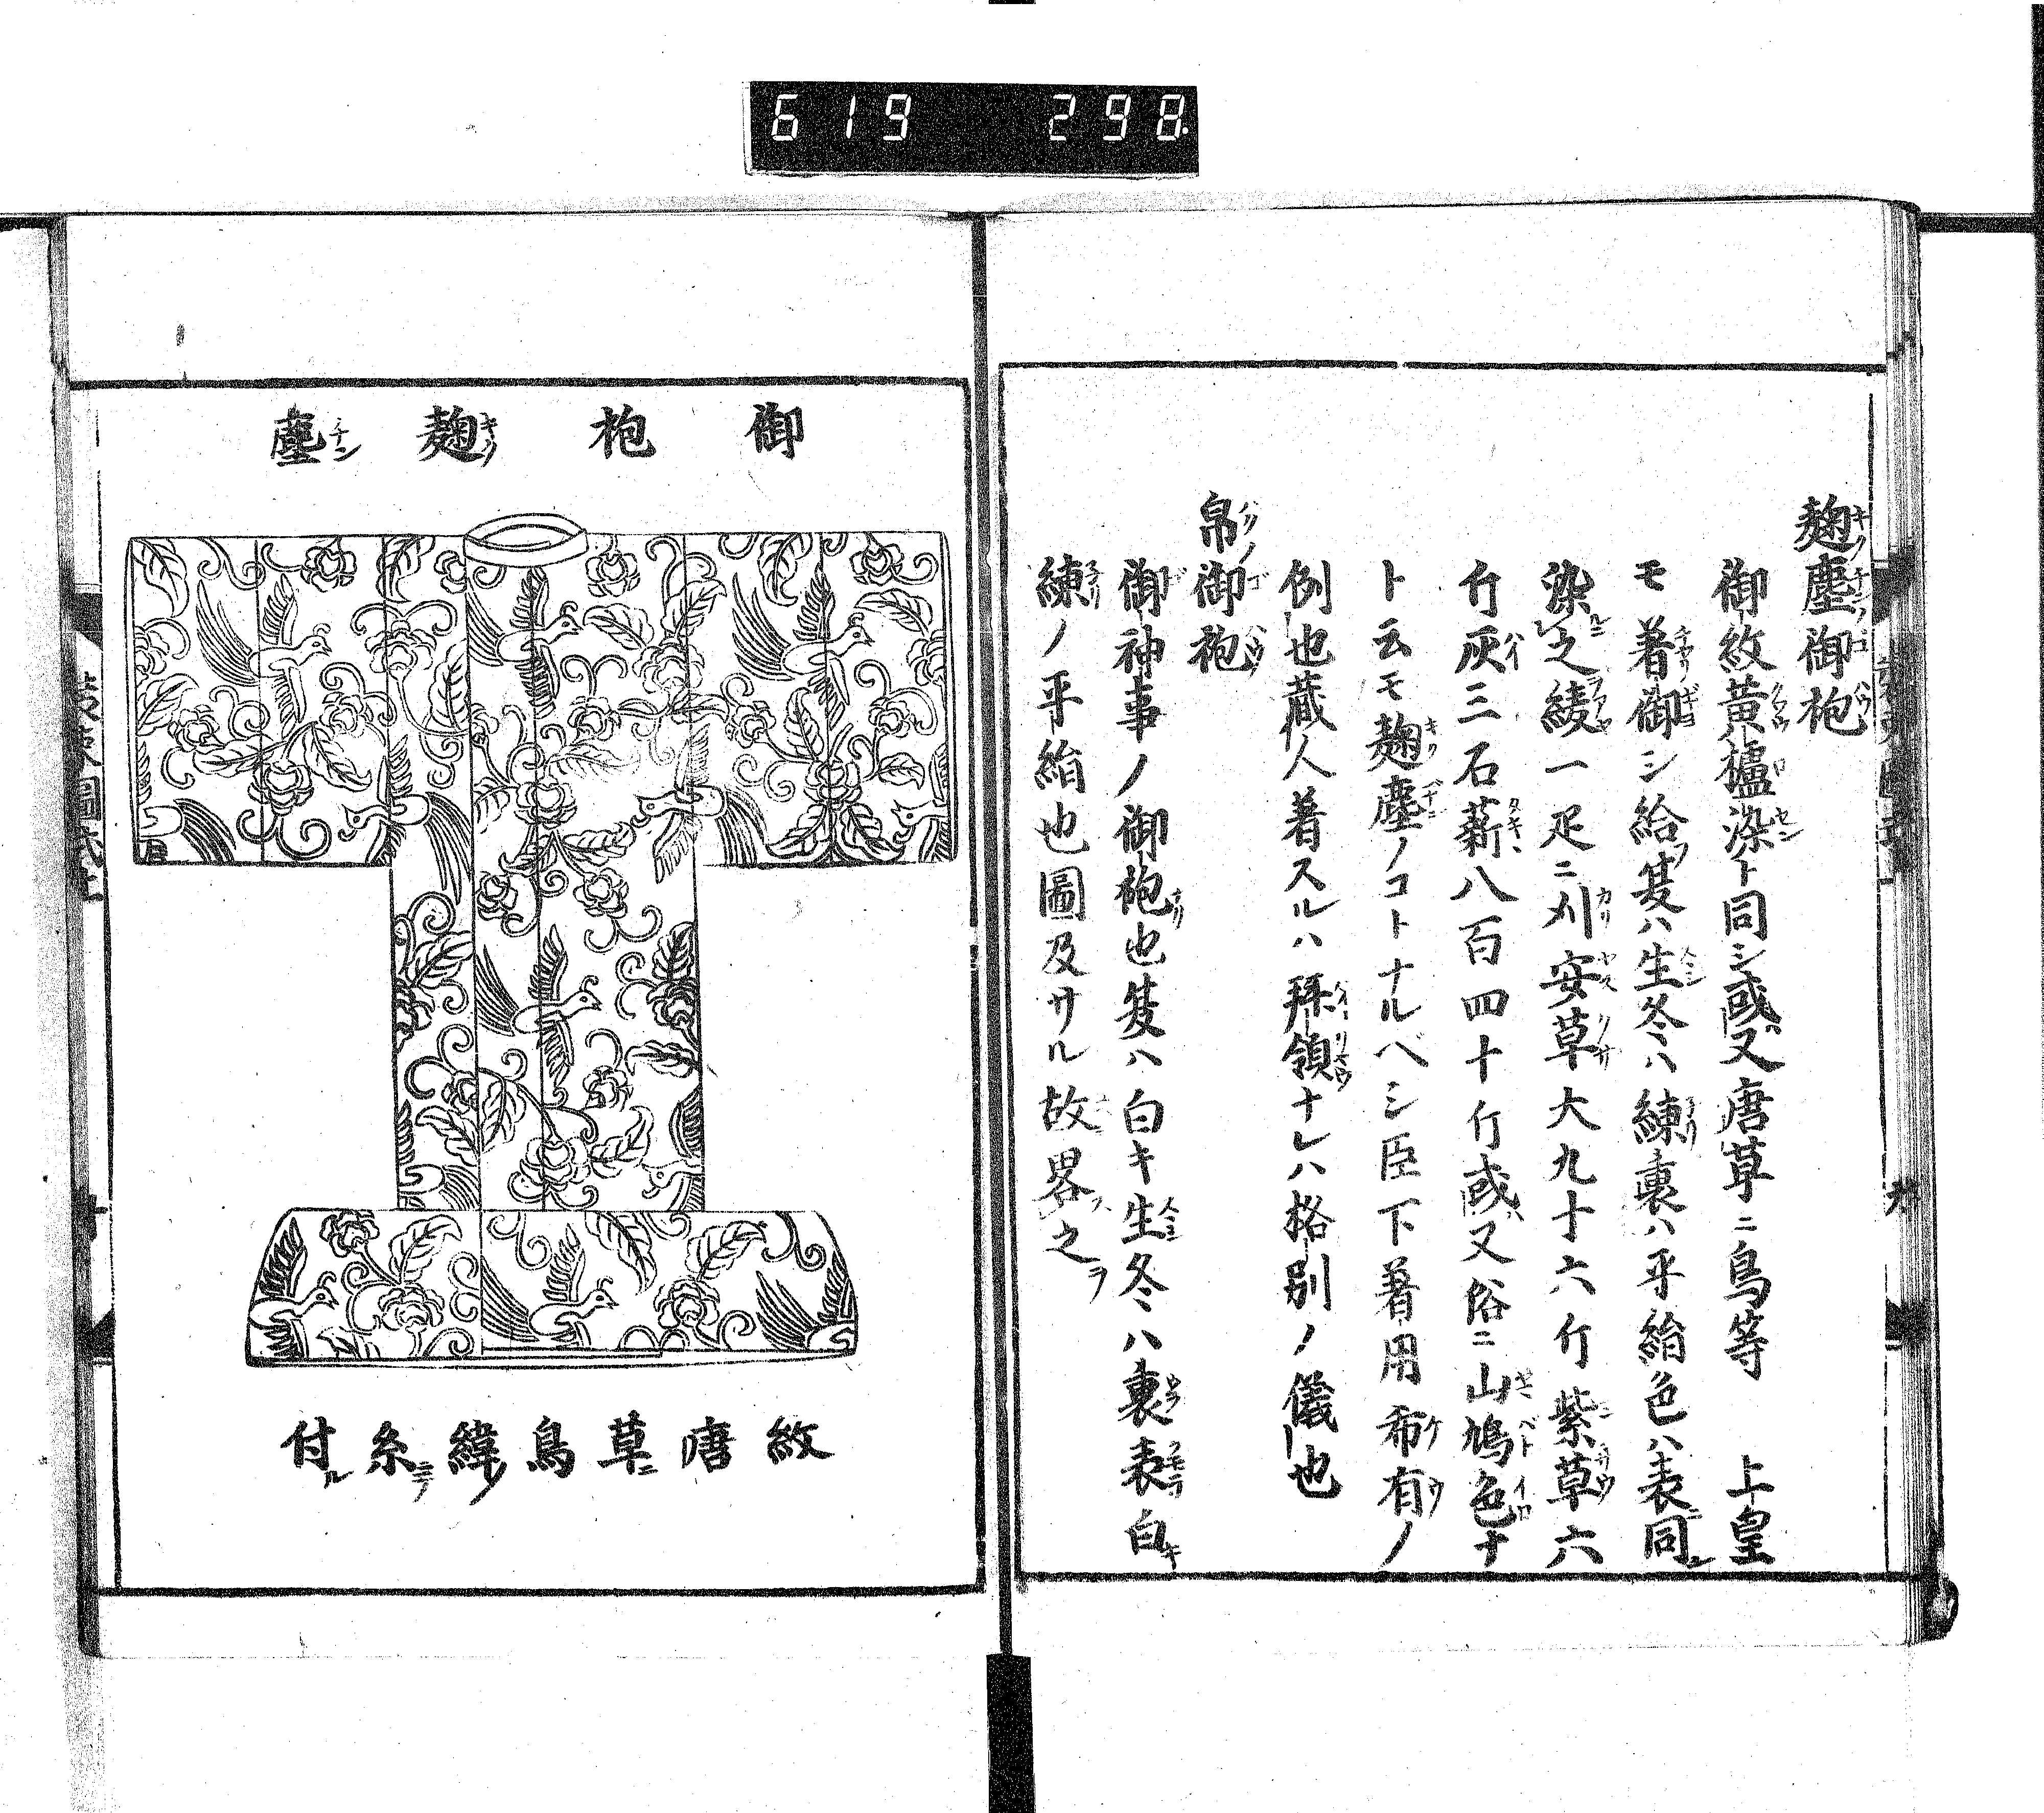 619 298
麹塵御袍
御紋黄櫨染ト同シ或又唐草ニ鳥等 上皇
モ着御シ給フ夏ハ生冬ハ練裏ハ平絹色ハ表同
染之綾一疋ニ刈安草大九十六斤紫草六
斤灰三石薪八百四十斤或又俗ニ山鳩色ナ
ト云モ麹塵ノコトナルベシ臣下着用希有ノ
例也蔵人着スルハ拝領ナレハ格別ノ儀也
帛御袍
御神事ノ御袍也夏ハ白キ生冬ハ裏表白
練ノ平絹也圖及サル故畧之
六
御袍麹塵
紋唐草鳥緯糸付